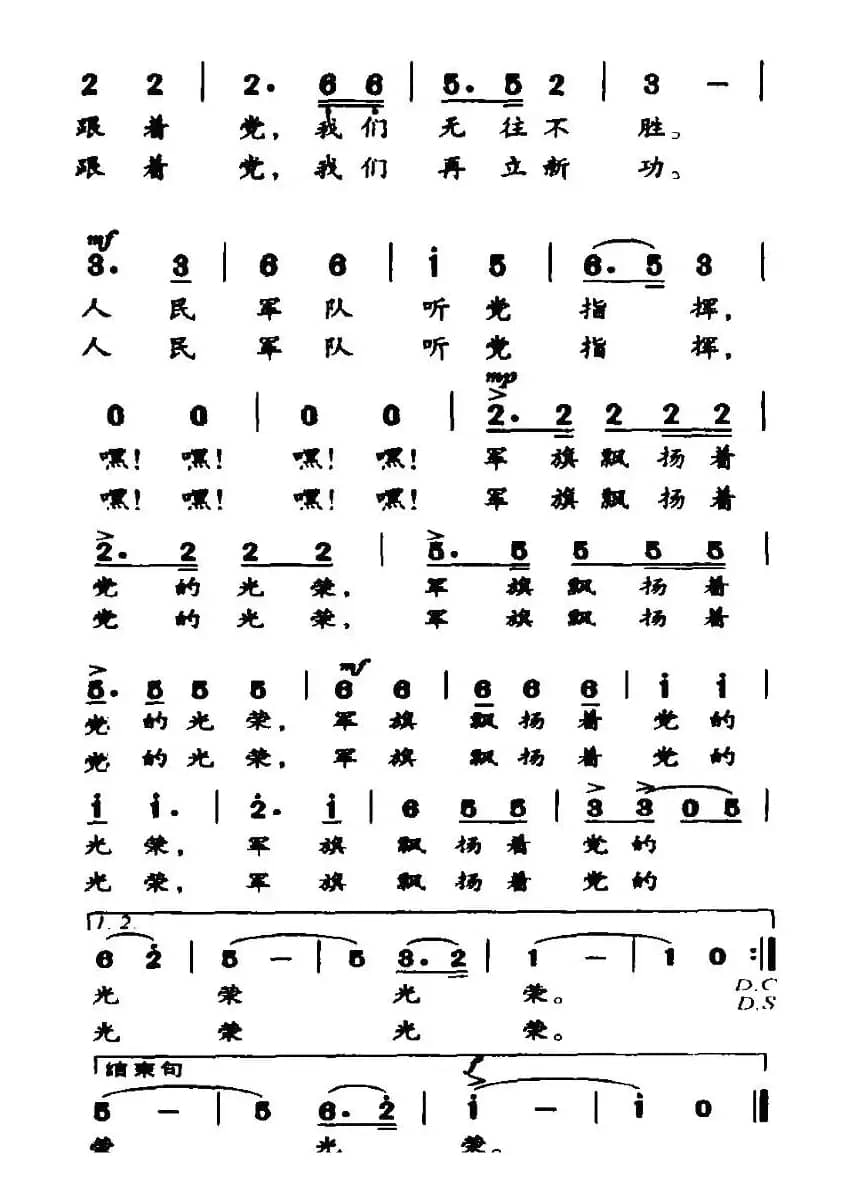 2 2 | 2. 6 6 | 5. 5 2 | 3 — |
跟着 党，我们 无往不 胜。
跟着 党，我们 再立新 功。
mf
3. 3 | 6 6 | i 5 | 6. 5 3 |
人 民 军 队 听 党 指 挥，
人 民 军 队 听 党 指 挥，
mp
0 0 | 0 0 | 2. 2 2 2 2 |
嘿！嘿！ 嘿！嘿！ 军 旗飘 扬着
嘿！嘿！ 嘿！嘿！ 军 旗飘 扬着
2. 2 2 2 | 5. 5 5 5 5 |
党 的光 荣， 军 旗飘 扬着
党 的光 荣， 军 旗飘 扬着
mf
5. 5 5 5 | 6 6 | 6 6 6 | i i |
党 的光 荣， 军旗 飘扬着 党的
党 的光 荣， 军旗 飘扬着 党的
i i. | 2. i | 6 5 5 | 3 3 0 5 |
光 荣， 军 旗 飘扬着 党的
光 荣， 军 旗 飘扬着 党的
1. 2.
6 2 | 5 — | 5 3. 2 | 1 — | 1 0 :‖
光 荣 光 荣。 D.C
光 荣 光 荣。 D.S
结束句
f
5 — | 5 6. 2 | i — | i 0 ‖
荣 光 荣。